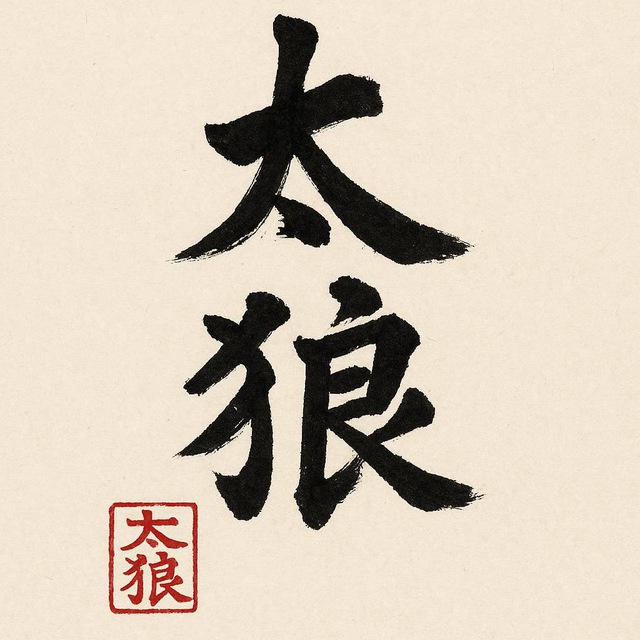 太
狼
太
狼